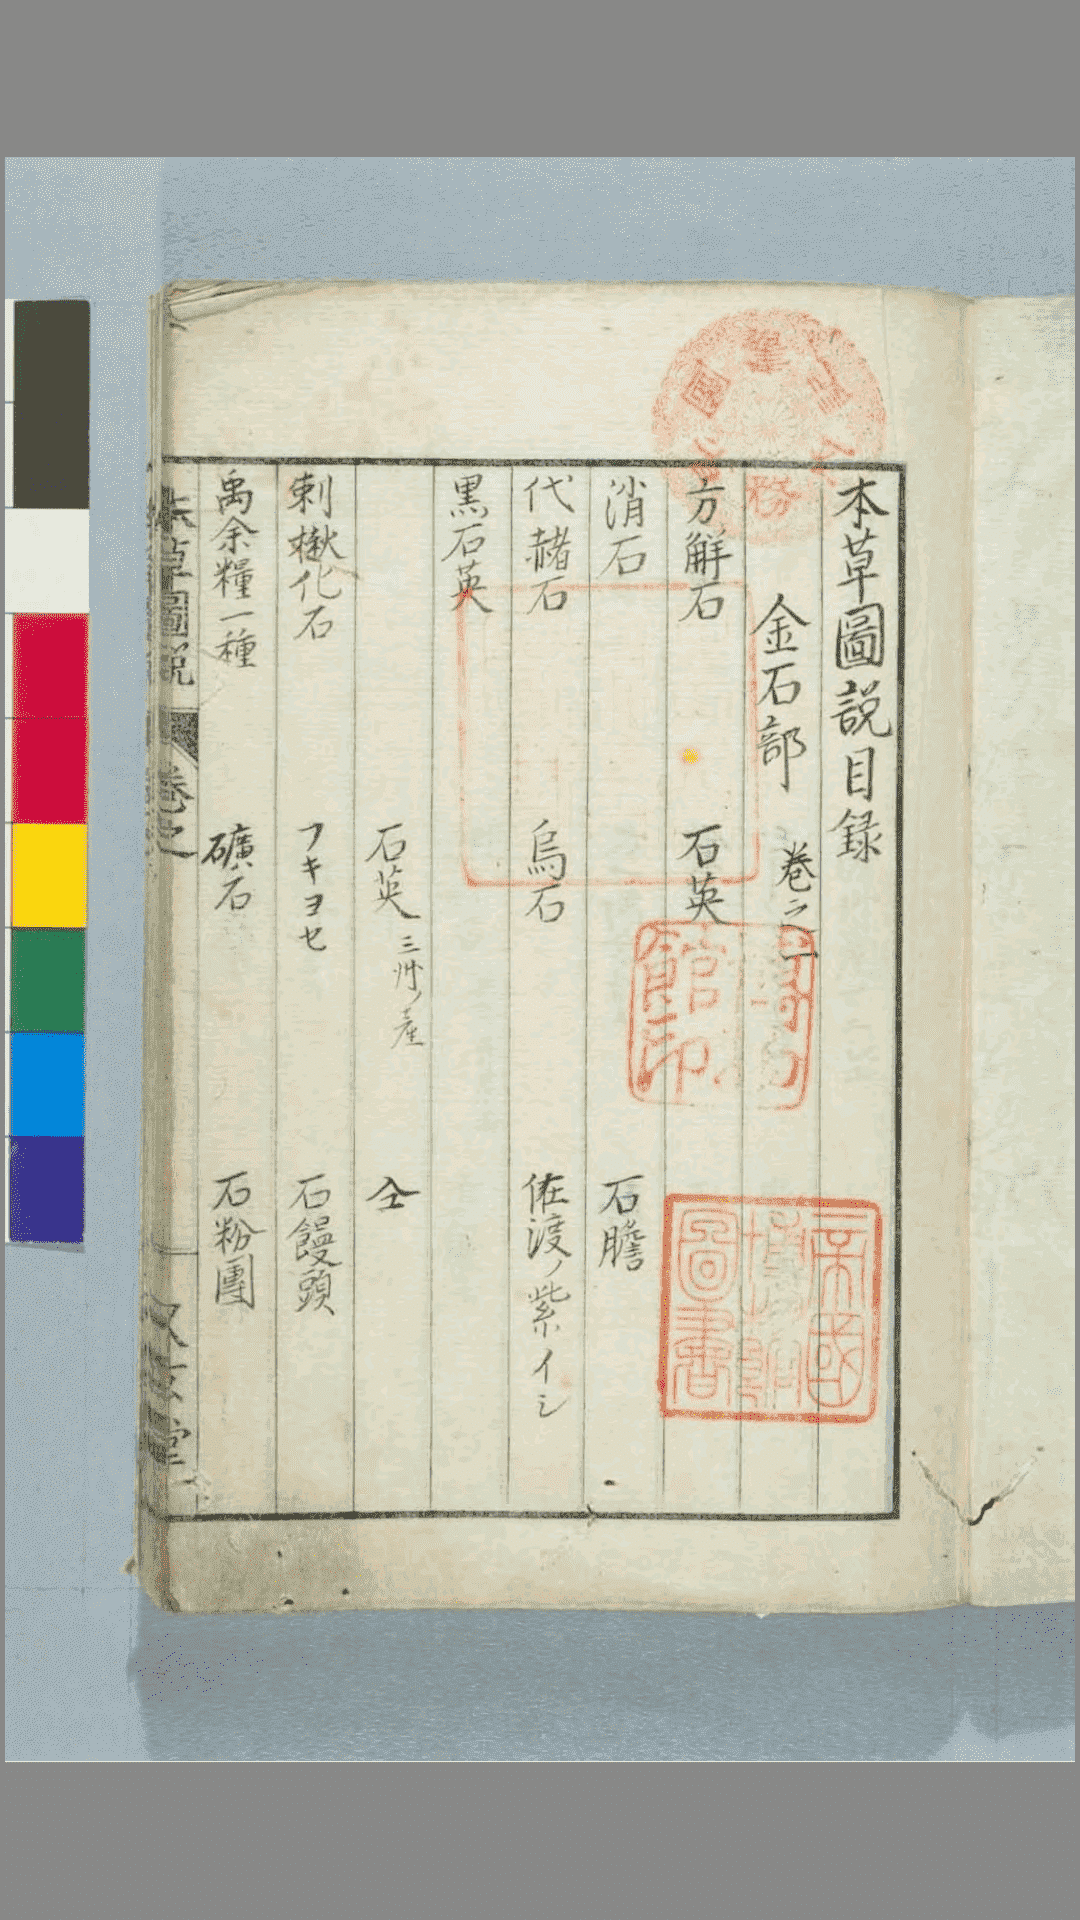 本草圖説目録
金石部 巻之一
方解石 石英
消石 石膽
代赭石 烏石 佐渡ノ紫イシ
黒石英
石英 三州ノ産 仝
刺楸化石 フキヨセ 石饅頭
禹余糧一種 礦石 石粉團
本草圖説 巻之
帝國博物館圖書